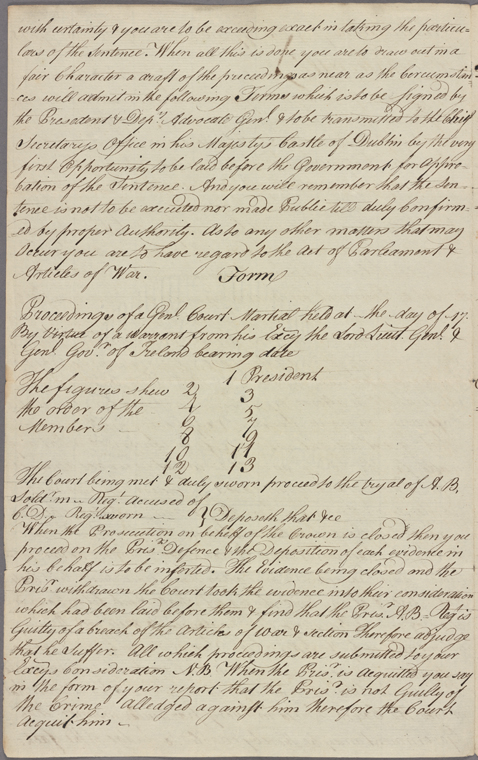 with certainty & you are to be exceeding exact in taking the particu-
lars of the Sentence. When all this is done you are to draw out in a
fair Character a draft of the proceedings as near as the Circumstan-
=ces will admit in the following Form which is to be Signed by
the President & Depy. Advocate Genl. & to be transmitted to the Chief
Secretarys Office in his Majestys Castle of Dublin by the very
first Opportunity to be laid before the Government for Appro-
bation of the Sentence. And you will remember that the Sen-
tence is not to be executed nor made Public till duly Confirm-
ed by proper Authority. As to any other matters that may
Occur you are to have regard to the Act of Parliament &
Articles of War. Form
Proceedings of a Genl. Court Martial held at the day of 17
By Virtue of a Warrant from his Excy the Lord Lieut. Genl. &
Genl. Govr. of Ireland bearing date
1 President
The figures shew 2 3
the order of the 4 5
Members 6 7
8 9
10 11
12 13
The Court being met & duly sworn proceed to the tryal of A.B.
Soldr. in Regt. accused of
C.D. Regt. sworn } Deposeth that &c
When the Prosecution on behalf of the Crown is closed then you
proceed on the Prisrs. Defence & the deposition of each evidence in
his behalf is to be inserted. The Evidence being closed and the
Prisr. withdrawn the Court took the evidence into their consideration
which had been laid before them & find that the Prisr. A.B. Regt. is
Guilty of a breach of the Articles of War & Section Therefore adjudge
that he Suffer. All which proceedings are submitted to your
Excys Consideration N.B. When the Prisr. is Acquitted you say
in the form of your report that the Prisr. is not Guilty of
the Crime Alledged against him therefore the Court
Acquit him